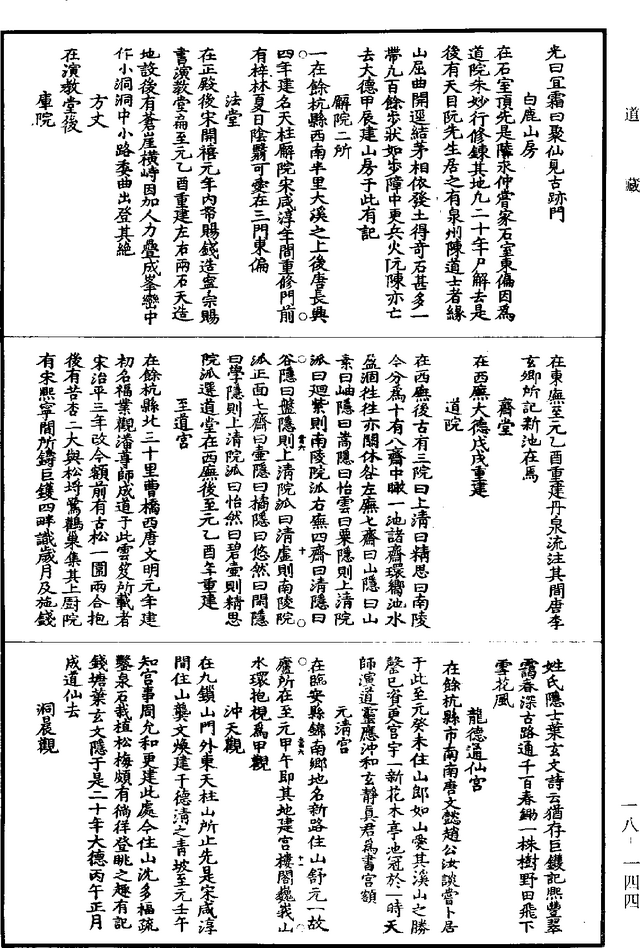 道藏
光曰宜霜曰聚仙見古跡門
白鹿山房
在石室頂先是陸永仲嘗家石室東偏因爲
道院朱妙行修鍊其地九二十年尸解去是
後有天目阮先生居之有泉州陳道士者緣
山屈曲開逕結茅相依發土得奇石甚多一
帶九百餘步狀如步障中更兵火阮陳亦亡
去大德甲辰建山房于此有記
廨院二所
一在餘杭縣西南半里大溪之上後唐長興
四年建名天柱廨院宋咸淳年間重修門前
有梓林夏日陰翳可愛在三門東偏
法堂
在正殿後宋開禧元年內帑賜錢造寧宗賜
書演教堂扁至元乙酉重建左右兩石天造
地設後有蒼崖橫峙因加人力疊成峯巒中
作小洞洞中小路委曲出登其絶
方丈
在演教堂後
庫院
在東廡至元乙酉重建丹泉流注其間唐李
玄卿所記新池在焉
齋堂
在西廡大德戊戌重建
道院
在西廡後古有三院曰上清曰精思曰南陵
今分爲十有八齋中瞰一池諸齋環嚮池水
盈涸往往亦關休咎左廡七齋曰山隱曰山
素曰岫隱曰嵩隱曰怡雲曰粟隱則上清院
派曰迎紫則南陵院派右廡四齋曰清隱曰
谷隱曰盤隱則上清院派曰清虛則南陵院
派正面七齋曰壺隱曰橘隱曰悠然曰閑隱
曰學隱則上清院派曰怡然曰碧壷則精思
院派選道堂在西廡後至元乙酉年重建
至道宮
在餘杭縣北二十里曹橋西唐文明元年建
初名福業觀潘尊師成道于此雲笈所載者
宋治平三年改今額前有古松一圍兩合抱
後有苦杏二大與松埒鸞鸛巢集其上厨院
有宋熙寧間所鑄巨鑊四畔識歲月及施錢
姓氏隱士葉玄文詩云猶存巨鑊記熙豐翠
靄春深古路通千百春鋤一株樹野田飛下
雪花風
龍德通仙宮
在餘杭縣市南南唐文懿趙公汝談嘗卜居
于此至元癸未住山郎如山愛其溪山之勝
罄已資更宮宇一新花木亭池冠於一時天
師演道靈應沖和玄靜真君爲書宮額
元清宮
在臨安縣錦南鄉地名新路住山舒元一故
廬所在至元甲午即其地建宮樓閣巍峩山
水環抱槻爲甲觀
沖天觀
在九鎖山門外東天柱山所止先是宋咸淳
間住山龔文煥建于德清之青坡至元壬午
知宮事周允和更建此處今住山沈多福疏
鑿泉石栽植松梅頗有徜徉登眺之趣有記
錢塘葉玄文隱于是二十年大德丙午正月
成道仙去
洞晨觀
一八－一四四